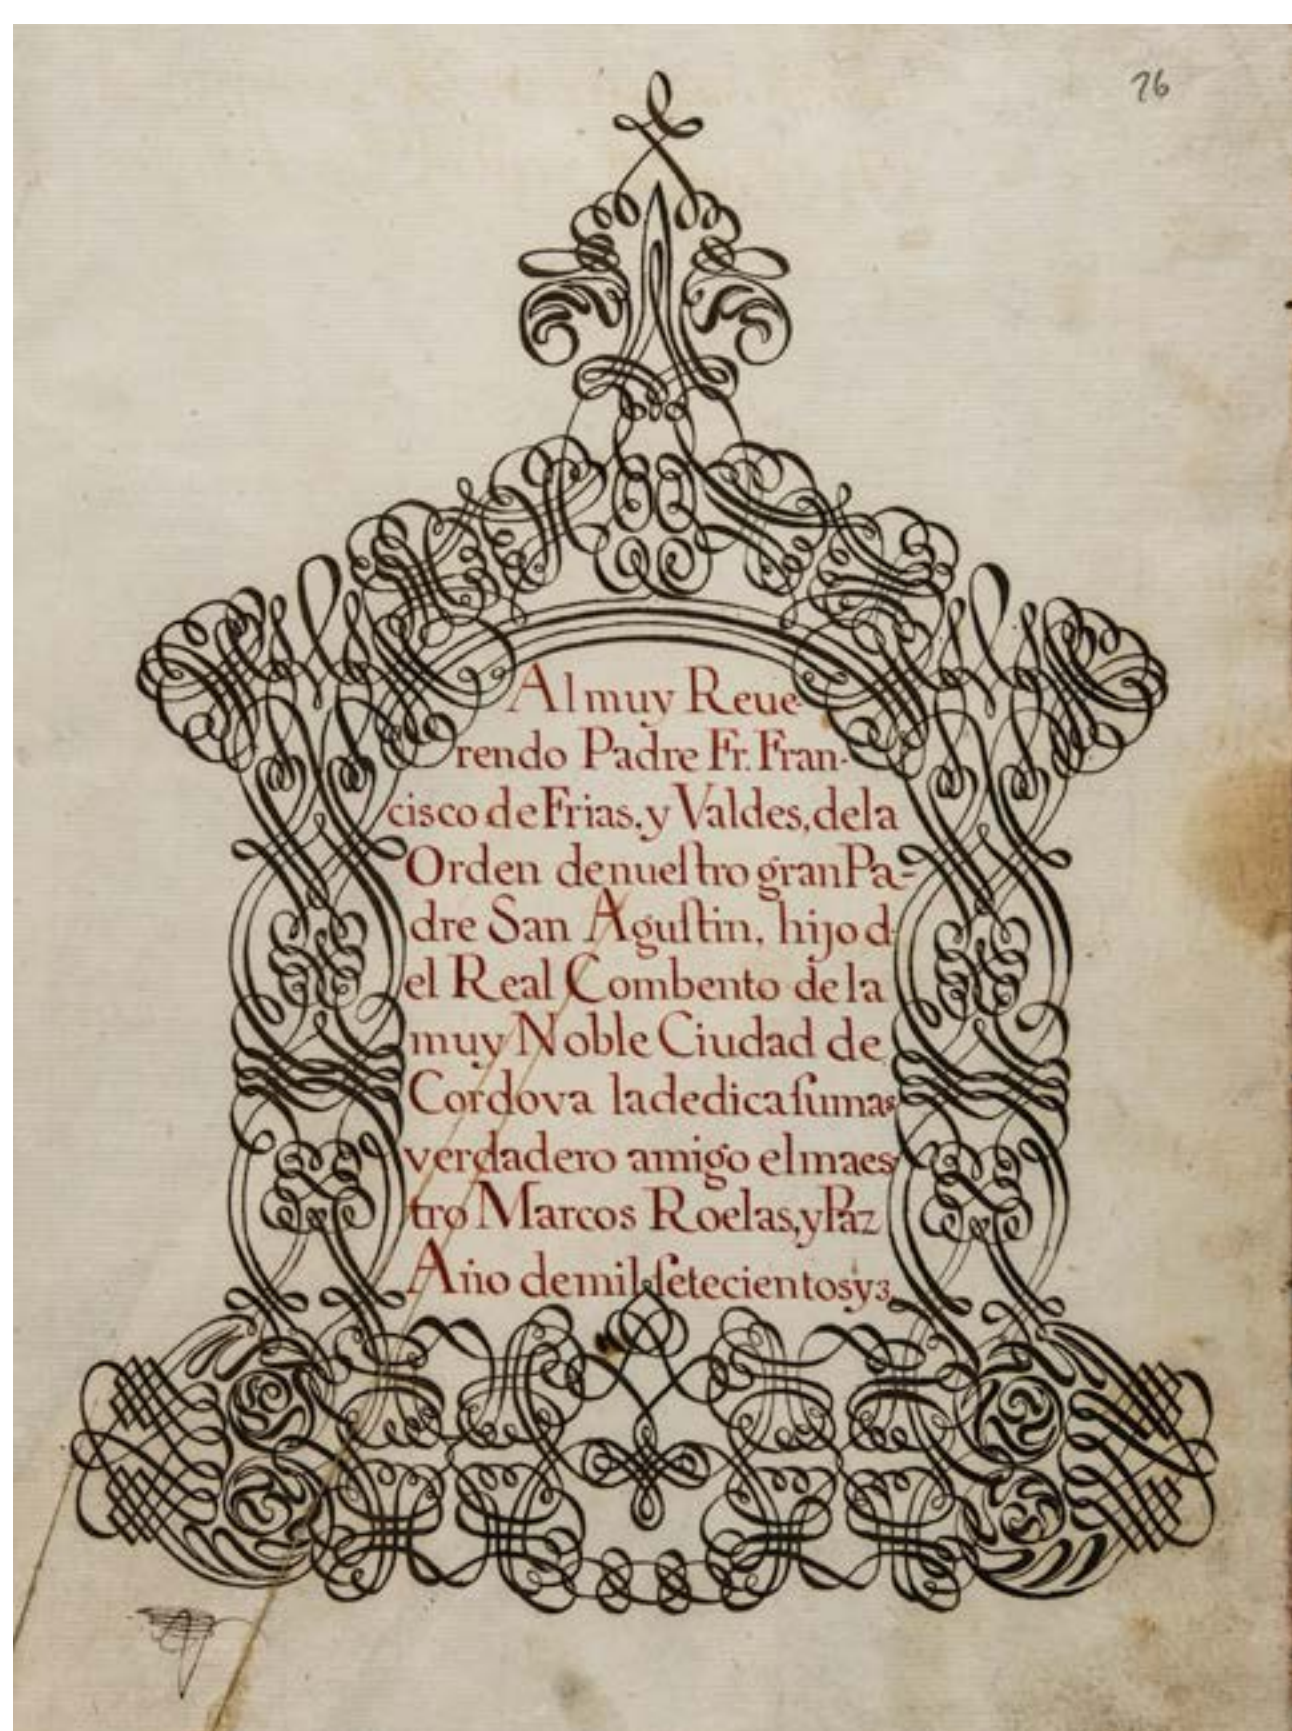 76
Al muy Reue-
rendo Padre Fr. Fran-
cisco de Frias, y Valdes, de la
Orden de nueſtro gran Pa-
dre San Aguſtin, hijo d-
el Real Combento de la
muy Noble Ciudad de
Cordova la dedica ſu mas
verdadero amigo el maes-
tro Marcos Roelas, y Paz
Año de mil ſetecientos y 3